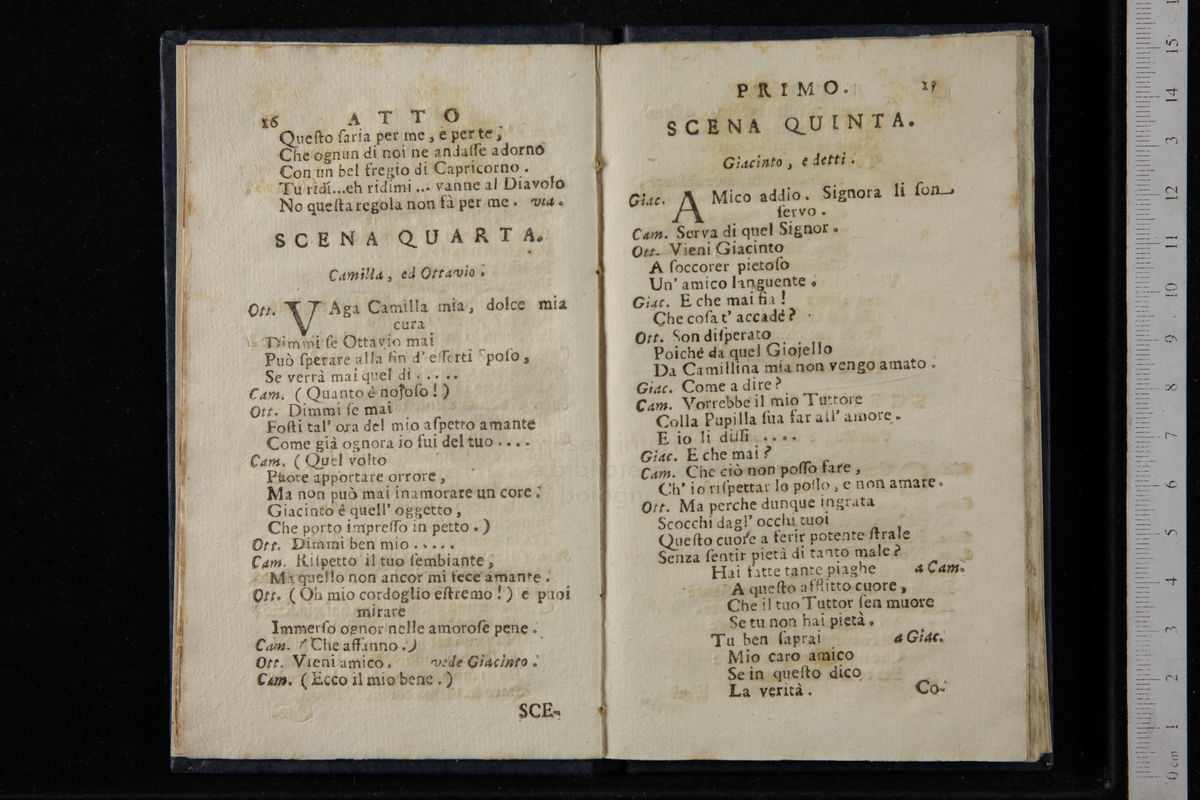 16 ATTO
Questo saria per me, e per te,
Che ognun di noi ne andasse adorno
Con un bel fregio di Capricorno.
Tu ridi...eh ridimi ... vanne al Diavolo
No questa regola non fà per me. via.
SCENA QUARTA.
Camilla, ed Ottavio.
Ott. VAga Camilla mia, dolce mia
cura
Dimmi se Ottavio mai
Può sperare alla fin d' esserti Sposo,
Se verrà mai quel dì . . . . .
Cam. (Quanto è nojoso!)
Ott. Dimmi se mai
Fosti tal' ora del mio aspetto amante
Come già ognora io fui del tuo . . . .
Cam. (Quel volto
Puote apportare orrore,
Ma non può mai inamorare un core.
Giacinto è quell' oggetto,
Che porto impresso in petto.)
Ott. Dimmi ben mio . . . . .
Cam. Rispetto il tuo sembiante,
Ma quello non ancor mi fece amante.
Ott. (Oh mio cordoglio estremo!) e puoi
mirare
Immerso ognor nelle amorose pene.
Cam. (Che affanno.)
Ott. Vieni amico. vede Giacinto.
Cam. (Ecco il mio bene.)
SCE-
PRIMO. 17
SCENA QUINTA.
Giacinto, e detti.
Giac. AMico addio. Signora li son
servo.
Cam. Serva di quel Signor.
Ott. Vieni Giacinto
A soccorer pietoso
Un' amico languente.
Giac. E che mai fia!
Che cosa t' accade?
Ott. Son disperato
Poichè da quel Giojello
Da Camillina mia non vengo amato.
Giac. Come a dire?
Cam. Vorrebbe il mio Tuttore
Colla Pupilla sua far all' amore.
E io li dissi . . . .
Giac. E che mai?
Cam. Che ciò non posso fare,
Ch' io rispettar lo posso, e non amare.
Ott. Ma perche dunque ingrata
Scocchi dagl' occhi tuoi
Questo cuore a ferir potente strale
Senza sentir pietà di tanto male?
Hai fatte tante piaghe a Cam.
A questo afflitto cuore,
Che il tuo Tuttor sen muore
Se tu non hai pietà.
Tu ben saprai a Giac.
Mio caro amico
Se in questo dico
La verità. Co-